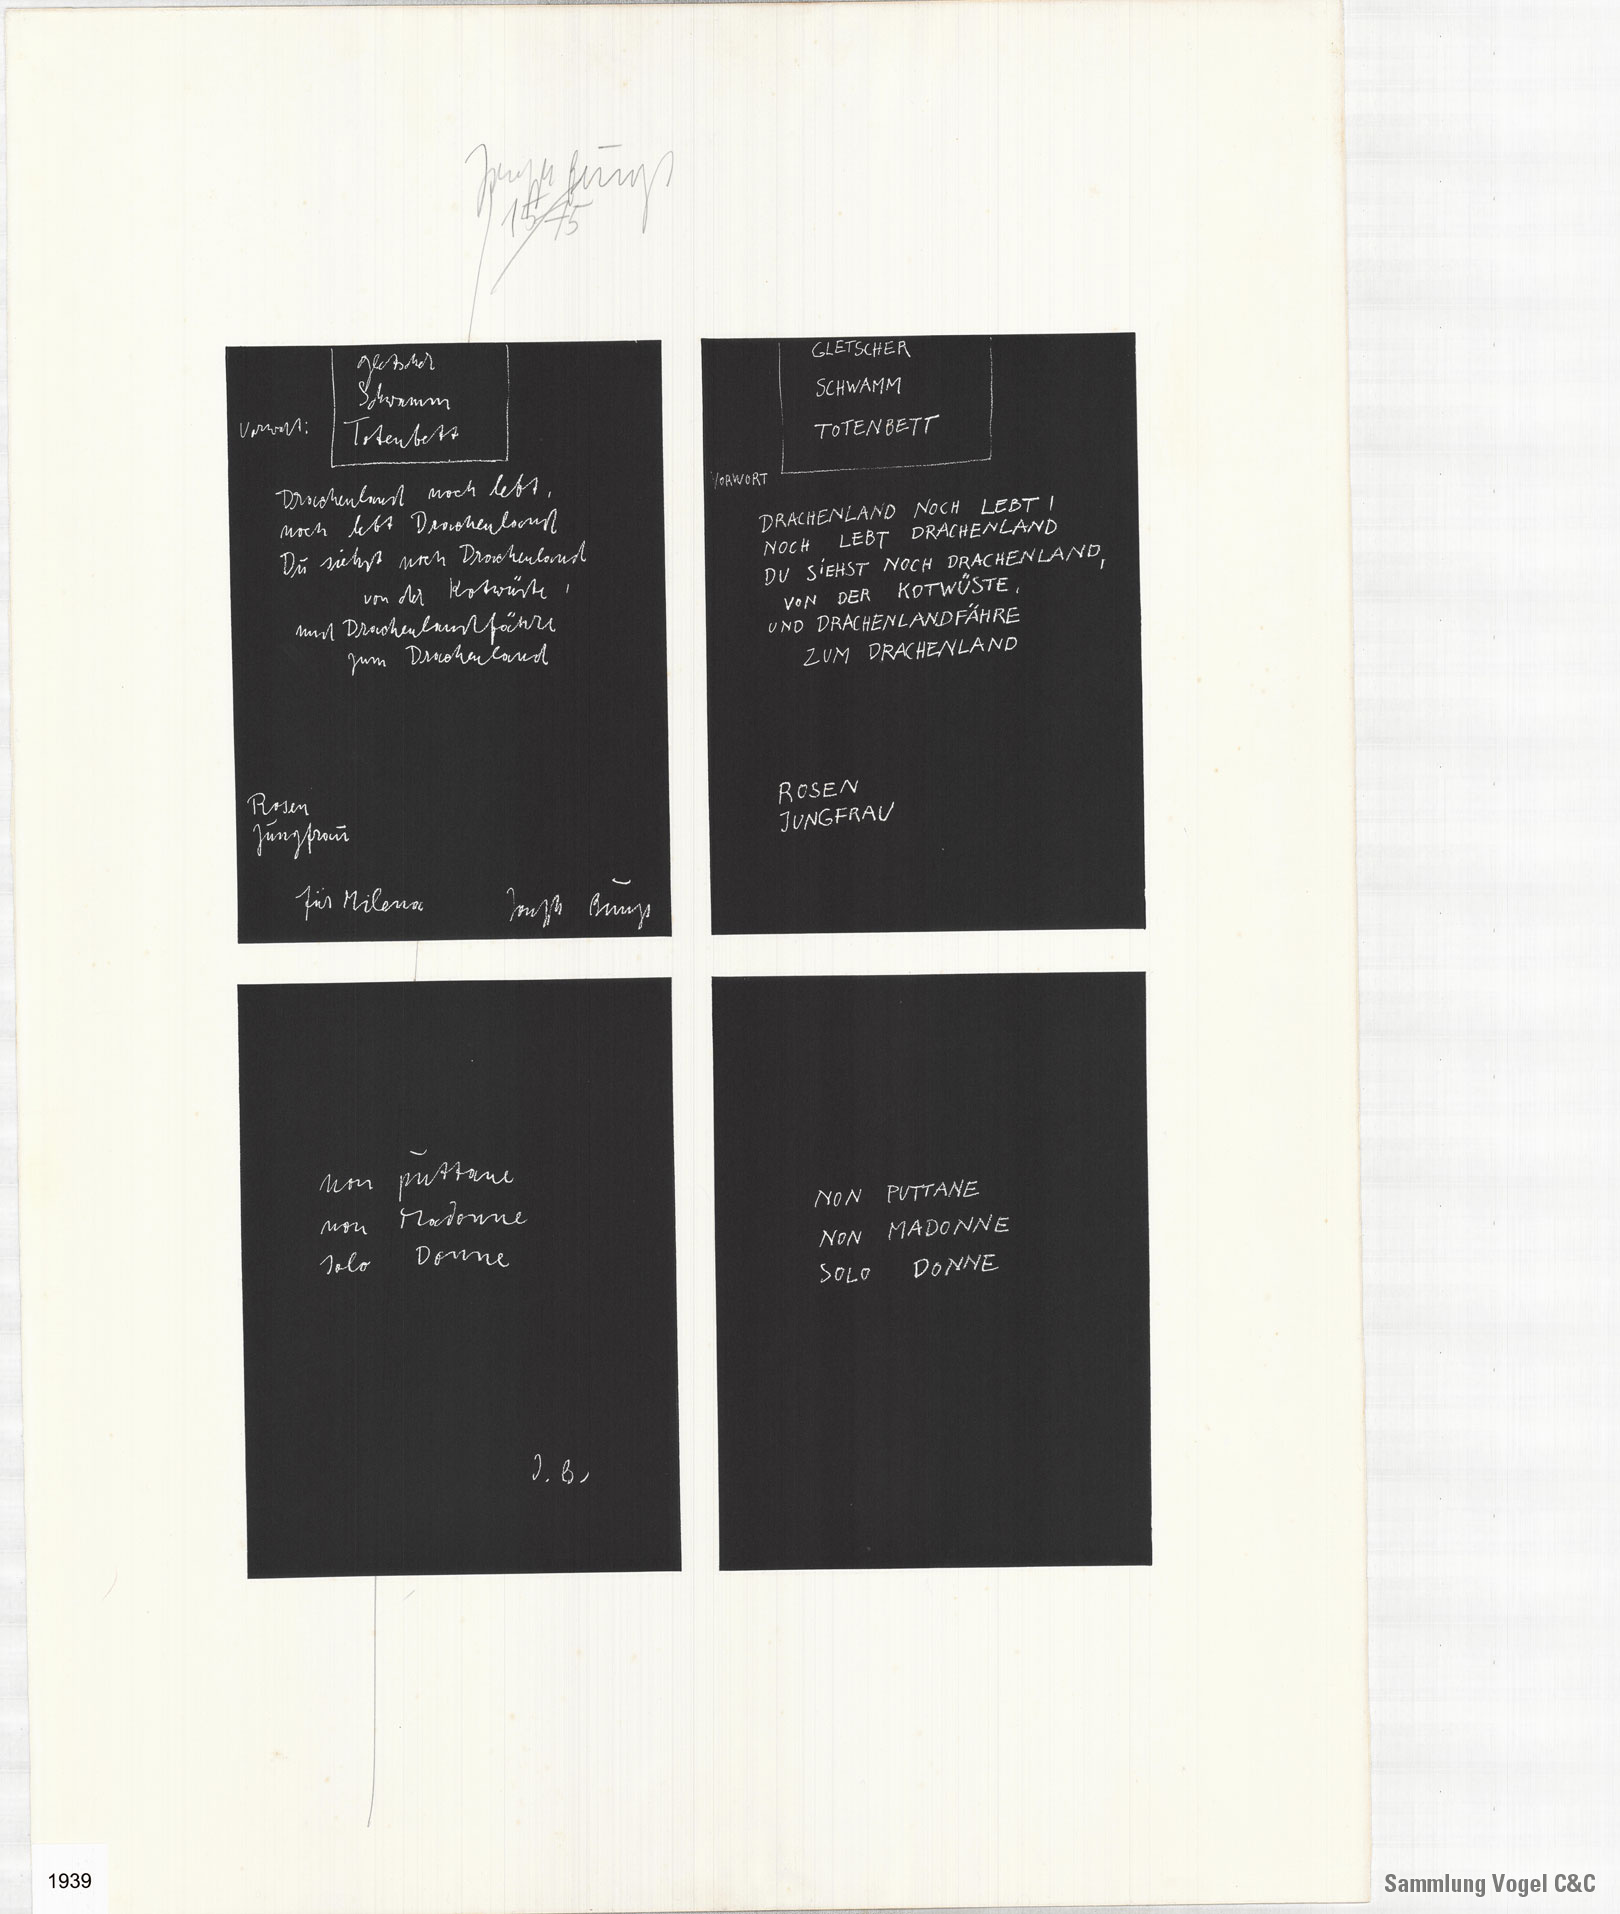 Joseph Beuys
15/75
gletscher
Schwamm
Vorwort: Totenbett
Drachenland noch lebt,
noch lebt Drachenland
Du siehst noch Drachenland
von der Kotwüste,
und Drachenlandfähre
zum Drachenland
Rosen
Jungfrau
für Milena Joseph Beuys
GLETSCHER
SCHWAMM
TOTENBETT
VORWORT
DRACHENLAND NOCH LEBT,
NOCH LEBT DRACHENLAND
DU SiEHST NOCH DRACHENLAND,
VON DER KOTWÜSTE,
UND DRACHENLANDFÄHRE
ZUM DRACHENLAND
ROSEN
JUNGFRAU
non puttane
non Madonne
solo Donne
J. B.
NON PUTTANE
NON MADONNE
SOLO DONNE
1939
Sammlung Vogel C&C